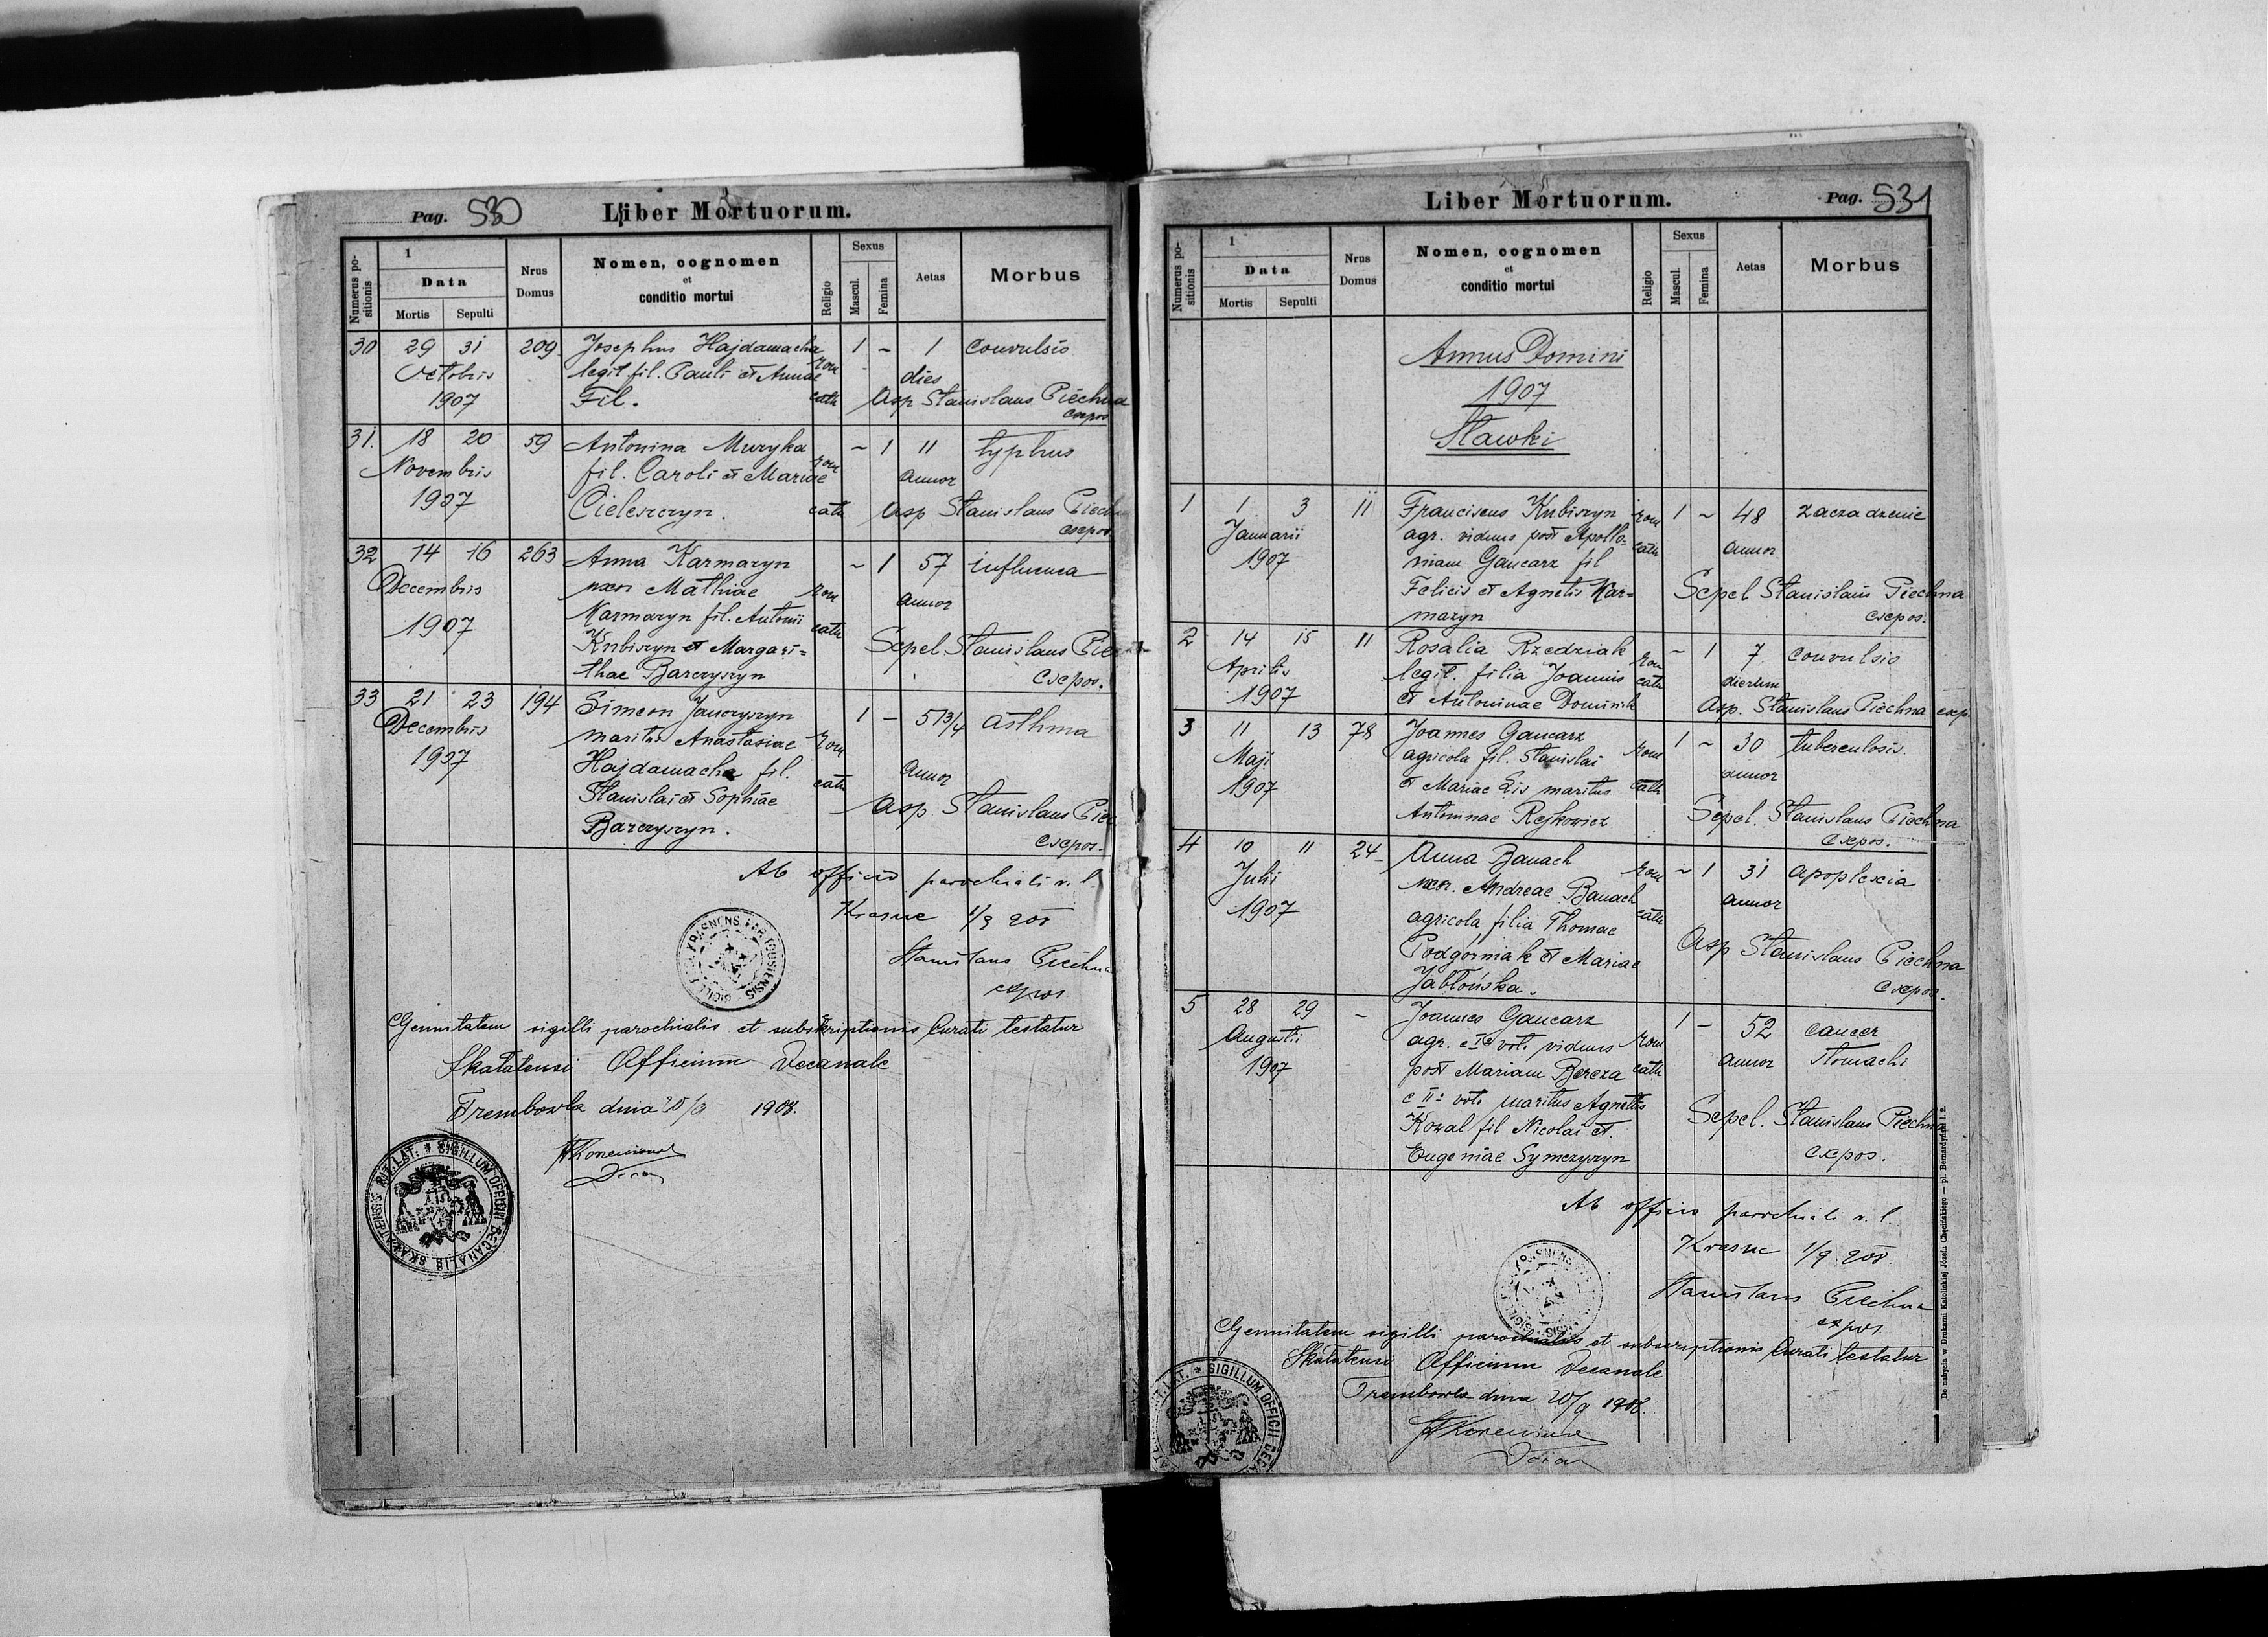 Pag. 530
Liber Mortuorum.
Numerus positionis
1
Data
Mortis
Sepulti
Nrus Domus
Nomen, cognomen
et
conditio mortui
Religio
Sexus
Mascul.
Femina
Aetas
Morbus
30 29 31 209 Josephus Hajdamacha 1 - 1 convulsio
Octobris legit fil. Pauli et Annae rom dies
1907 Fil. cath Asp Stanislaus Piechna
expos
31. 18 20 59 Antonina Muzyka ~ 1 11 typhus
Novembris fil. Caroli et Mariae rom annor
1907 Cieleszczyn. cath Asp Stanislaus Piech
expos.
32 14 16 263 Anna Karmazyn ~ 1 57 influenca
Decembris uxor Mathiae rom annor
1907 Karmazyn fil. Antonii cath
Kubiszyn et Margari=
Sepel. Stanislaus Piech
thae Barczyszyn
expos.
33 21 23 194 Simeon Janczyszyn 1 - 51 3/4 asthma
Decembris maritus Anastasiae rom
1907 Hajdamacha fil. cath annor
Stanislai et Sophiae Asp Stanislaus Piec
Barczyszyn.
expos.
Ab officio parochiali r. l.
Krasne 1/9 908
Stanislaus Piechna
expos.
Genuitatem sigilli parochialis et subskriptionis Curati testatur
Skalatensi Officium Decanale
Trembowla dnia 20/9 1908.
SIGILLUM OFFICII DECANALIS SKAŁATENSIS RIT. LAT.
Liber Mortuorum.
Pag. 531
Numerus positionis
1
Data
Mortis
Sepulti
Nrus Domus
Nomen, cognomen
et
conditio mortui
Religio
Sexus
Mascul.
Femina
Aetas
Morbus
Annus Domini
1907
Sławki
1 1 3 11 Franciscus Kubiszyn rom 1 ~ 48 zaczadzenie
Januarii agr. viduus post Apollo= cath annor
1907 niam Gancarz fil
Felicis et Agnetis Kar= Sepel Stanislaus Piechna
mazyn expos.
2 14 15 11 Rosalia Rzedziak rom ~ 1 7 convulsio
Aprilis legit. filia Joannis cath dierum
1907 et Antoninae Dominik Asp. Stanislaus Piechna exp.
3 11 13 78 Joannes Gancarz 1 ~ 30 tuberculosis.
Maji agricola fil. Stanislai rom annor
1907 et Mariae Lis maritus cath
Antoninae Rejkowicz Sepel. Stanislaus Piechna
expos.
4 10 11 24 Anna Banach rom ~ 1 31 apoplexia
Julii uxor. Andreae Banach cath annor
1907 agricola, filia Thomae
Podgórniak et Mariae Asp Stanislaus Piechna
Jabłońska. expos.
5 28 29 - Joannes Gancarz 1 - 52 cancer
Augustii agr. e I° voti viduus rom annor stomachi
1907 post Mariam Bereza cath
e II° voti maritus Agnetis
Kowal fil Nicolai et. Sepel. Stanislaus Piechna
Eugeniae Symczyszyn expos.
Ab officio parochiali r. l.
Krasne 1/9 908
Stanislaus Piechna
expos.
Genuitatem sigilli parochialis et subscriptionis Curati testatur
Skalatensi Officium Decanale
Trembowla dnia 20/9 1908.
SIGILLUM OFFICII DECANA
Do nabycia w Drukarni Katolickiej Józefa Chęcińskiego — pl. Bernardyński l. 2.